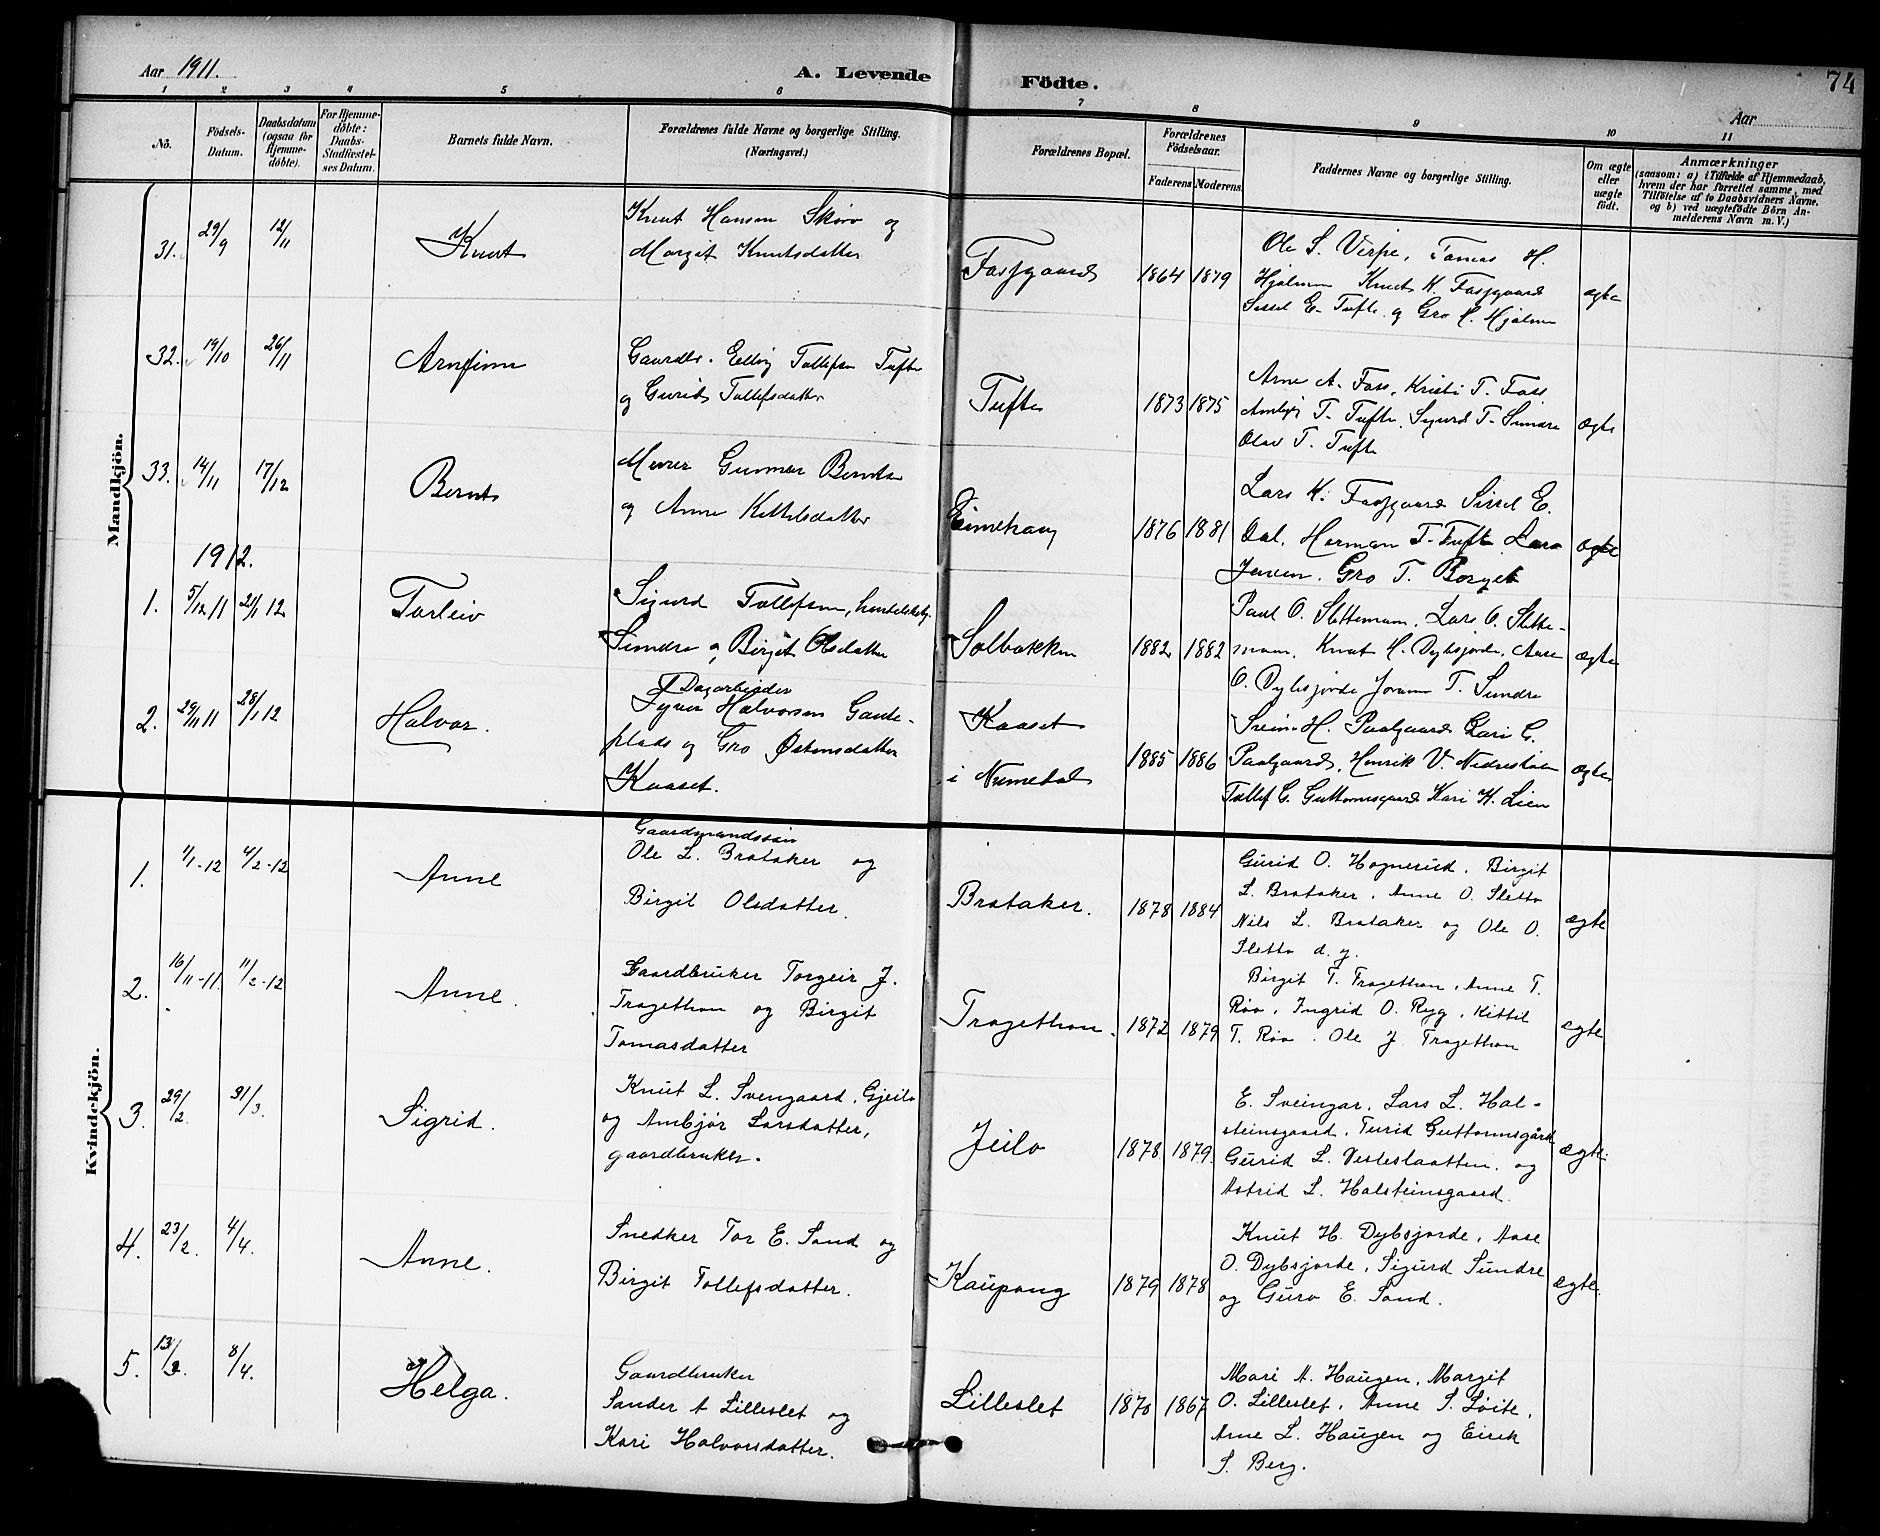 Aar 1911.
A. Levende Födte.
74
Aar
1 2 3 4 5 6 7 8 9 10 11
No.
Födsels-Datum.
Daabsdatum (ogsaa for Hjemme-döbte).
For Hjemme-döbte: Daabs-Stadfæstel-ses Datum.
Barnets fulde Navn.
Forældrenes fulde Navne og borgerlige Stilling.
(Næringsvei.)
Forældrenes Bopæl.
Forældrenes Födselsaar.
Faderens Moderens.
Faddernes Navne og borgerlige Stilling.
Om ægte eller uægte födt.
Anmærkninger
(saasom: a) i Tilfælde af Hjemmedaab,
hvem der har forrettet samme, med
Tilföielse af to Daabsvidners Navne.
og b) ved uægtefödte Börn An-
melderens Navn m. V.)
Mandkjön.
31. 29/9 12/11 Knut
Knut Hansen Skørv og
Margit Knutsdatter
Fassgaard 1864 1879
Ole S. Virpe, Tomas H.
Hjalmen Knut K. Fassgaard
Sissel E. Tufte og Gro H. Hjalmen
ægte
32. 19/10 26/11 Arnfinn
Gaardbr. Elling Tollefsen Tufte
og Gurid Tollefsdatter
Tufte 1873 1875
Arne A. Foss, Kristi T. Foss
T. Tufte, Sigurd T. Sundre
Olav T. Tufte
ægte
33. 14/11 17/12 Bernt
Murer Gunnar Berntsen
og Anne Kittelsdatter
1876 1881
Lars K. Fassgaard Sissel E.
Dal, Herman T. Tufte Lars
Jensen, Gro T. Borget
ægte
1912.
1. 5/12 11 21/1 12 Torleiv
Sigurd Tollefsen,
Sundre og Birgit Olsdatter
Solbakken 1882 1882
Paul O. Slettemoen, Lars O. Slette-
moen, Knut H. Dybsjorde, Aase
O. Dybsjorde Joran T. Sundre
ægte
2. 29/11 11 28/1 12 Halvor.
Dagarbeider
Syver Halvorsen Garde-
plads og Gro Østensdatter
Kaaset.
Kaaset
i Numedal 1885 1886
Svein H. Paalgaard Kari G.
Paalgaard, Henrik V. Nedrestøen
Tollef G. Guttormsgaard Kari H. Lien
ægte
Kvindekjön.
1. 1/1-12 4/2-12 Anne
Gaardmandssøn
Ole L. Brataker og
Birgit Olsdatter.
Brataker. 1878 1884
Gurid O. Hognerud, Birgit
L. Brataker, Anne O. Sletto
Nils L. Brataker og Ole O.
Sletto d. y.
ægte
2. 16/11-11. 11/2-12 Anne.
Gaardbruker Torgeir J.
Tragethon og Birgit
Tomasdatter
Tragethon. 1872 1879
Birgit T. Tragethon, Anne T.
Røo, Ingrid O. Ryg, Kittil
T. Røo. Ole J. Tragethon
ægte
3. 29/2. 31/3. Sigrid.
Knut L. Svengaard, Gjeilo
og Ambjør Larsdatter,
gaardbruker.
Jeilo 1878 1879.
E. Sveingar, Lars L. Hal-
steinsgaard, Turid Guttormsgård
Gurid L. Vesleslaatten og
Astrid L. Halsteinsgaard.
ægte.
4. 23/2. 4/4. Anne.
Snedker Tor E. Sand og
Birgit Tollefsdatter.
Kaupang 1879 1878
Knut H. Dybsjorde, Aase
O. Dybsjorde, Sigurd Sundre
og Guro E. Sand.
ægte.
5. 13/2. 8/4. Helga.
Gaardbruker
Sander A Lilleslet og
Kari Halvorsdatter.
Lilleslet 1870 1867
Mari A. Haugen, Margit
O. Lilleslet, Anne S. Løite,
Arne L. Haugen og Eirik
S. Berg.